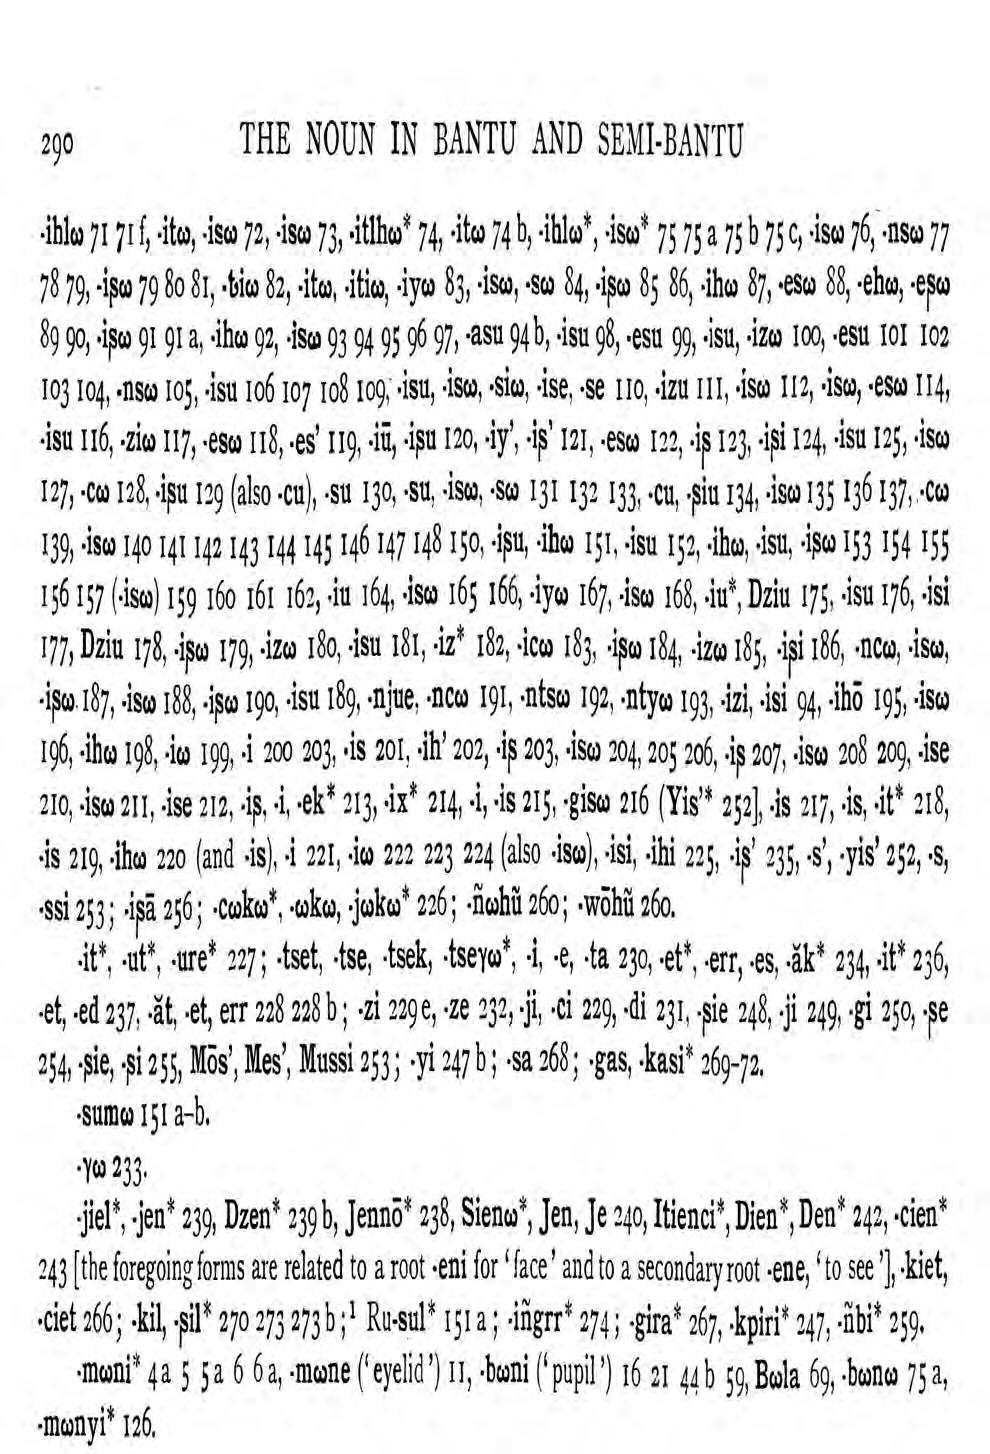 290 THE NOUN IN BANTU AND SEMI-BANTU
·ihlω 71 71 f, ·itω, ·isω 72, ·isω 73, ·itlhω* 74, ·itω 74 b, ·ihlω*, ·isω* 75 75 a 75 b 75 c, ·isω 76, ·nsω 77
78 79, ·iʂω 79 80 81, ·tiω 82, ·itω, ·itiω, ·iyω 83, ·isω, ·sω 84, ·iʂω 85 86, ·ihω 87, ·esω 88, ·ehω, ·eʂω
89 90, ·iʂω 91 91 a, ·ihω 92, ·isω 93 94 95 96 97, ·asu 94 b, ·isu 98, ·esu 99, ·isu, ·izω 100, ·esu 101 102
103 104, ·nsω 105, ·isu 106 107 108 109, ·isu, ·isω, ·siω, ·ise, ·se 110, ·izu 111, ·isω 112, ·isω, ·esω 114,
·isu 116, ·ziω 117, ·esω 118, ·es’ 119, ·iū, ·iʂu 120, ·iy’, ·iʂ’ 121, ·esω 122, ·iʂ 123, ·iʂi 124, ·isu 125, ·isω
127, ·cω 128, ·iʂu 129 (also ·cu), ·su 130, ·su, ·isω, ·sω 131 132 133, ·cu, ·ʂiu 134, ·isω 135 136 137, ·cω
139, ·isω 140 141 142 143 144 145 146 147 148 150, ·iʂu, ·ihω 151, ·isu 152, ·ihω, ·isu, ·iʂω 153 154 155
156 157 (·isω) 159 160 161 162, ·iu 164, ·isω 165 166, ·iyω 167, ·isω 168, ·iu*, Dziu 175, ·isu 176, ·isi
177, Dziu 178, ·iʂω 179, ·izω 180, ·isu 181, ·iz* 182, ·icω 183, ·iʂω 184, ·izω 185, ·iʂi 186, ·ncω, ·isω,
·iʂω 187, ·isω 188, ·iʂω 190, ·isu 189, ·njue, ·ncω 191, ·ntsω 192, ·ntyω 193, ·izi, ·isi 94, ·ihō 195, ·isω
196, ·ihω 198, ·iω 199, ·i 200 203, ·is 201, ·ih’ 202, ·iʂ 203, ·isω 204, 205 206, ·iʂ 207, ·isω 208 209, ·ise
210, ·isω 211, ·ise 212, ·iʂ, ·i, ·ek* 213, ·ix* 214, ·i, ·is 215, ·gisω 216 (Yis’* 252], ·is 217, ·is, ·it* 218,
·is 219, ·ihω 220 (and ·is), ·i 221, ·iω 222 223 224 (also ·isω), ·isi, ·ihi 225, ·iʂ’ 235, ·s’, ·yis’ 252, ·s,
·ssi 253; ·iʂā 256; ·cωkω*, ·ωkω, ·jωkω* 226; ·ñωhũ 260; ·wōhũ 260.
·it*, ·ut*, ·ure* 227; ·tset, ·tse, ·tsek, ·tseγω*, ·i, ·e, ·ta 230, ·et*, ·err, ·es, ·ăk* 234, ·it* 236,
·et, ·ed 237, ·ăt, ·et, err 228 228 b; ·zi 229 e, ·ze 232, ·ji, ·ci 229, ·di 231, ·ʂie 248, ·ji 249, ·gi 250, ·ʂe
254, ·ʂie, ·ʂi 255, Mōs’, Mes’, Mussi 253; ·yi 247 b; ·sa 268; ·gas, ·kasi* 269–72.
·sumω 151 a–b.
·γω 233.
·jiel*, ·jen* 239, Dzen* 239 b, Jennō* 238, Sienω*, Jen, Je 240, Itienci*, Dien*, Den* 242, ·cien*
243 [the foregoing forms are related to a root ·eni for ‘face’ and to a secondary root ·ene, ‘to see’], ·kiet,
·ciet 266; ·kil, ·ʂil* 270 273 273 b;¹ Ru-sul* 151 a; ·iñgrr* 274; ·gira* 267, ·kpiri* 247, ·ñbi* 259.
·mωni* 4 a 5 5 a 6 6 a, ·mωne (‘eyelid’) 11, ·bωni (‘pupil’) 16 21 44 b 59, Bωla 69, ·bωnω 75 a,
·mωnyi* 126.